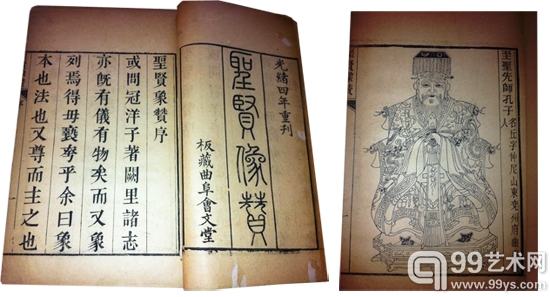 光緒四年重刊
聖賢像贊
板藏曲阜會文堂
聖賢象贊序
或問冠洋子著闕里諸志
亦旣有儀有物矣而又象
列焉得毋褻乎余曰象
本也法也又尊而主之也
至聖先師孔子名丘字仲尼山東兗州府曲
人
99艺术网
www.99ys.com